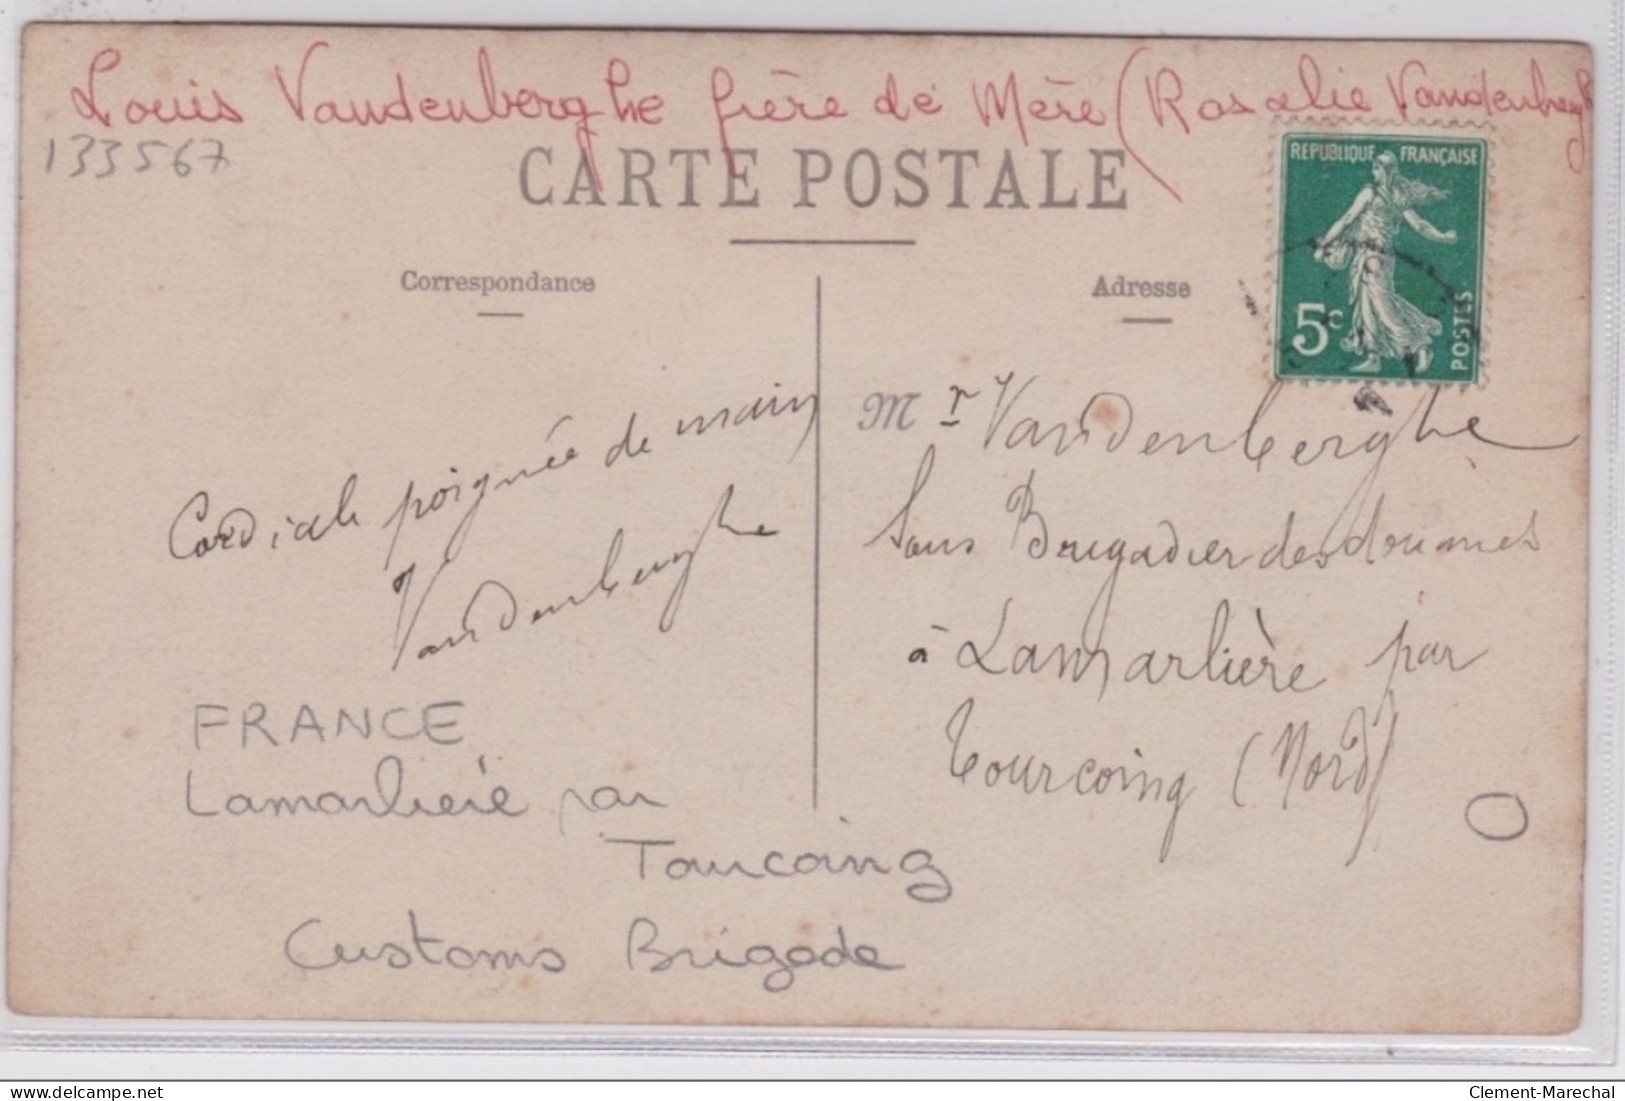 Louis Vandenberghe frère de Mère (Rosalie Vandenbergh
133567
CARTE POSTALE
REPUBLIQUE FRANÇAISE
5c
POSTES
Correspondance
Adresse
Cordiale poignée de main
Vandenberghe
Mr Vandenberghe
Sous Brigadier des douanes
à Lamarlière par
Tourcoing (Nord)
FRANCE
Lamarlière par
Tourcoing
Customs Brigade
delcampe.net
Clement-Marechal